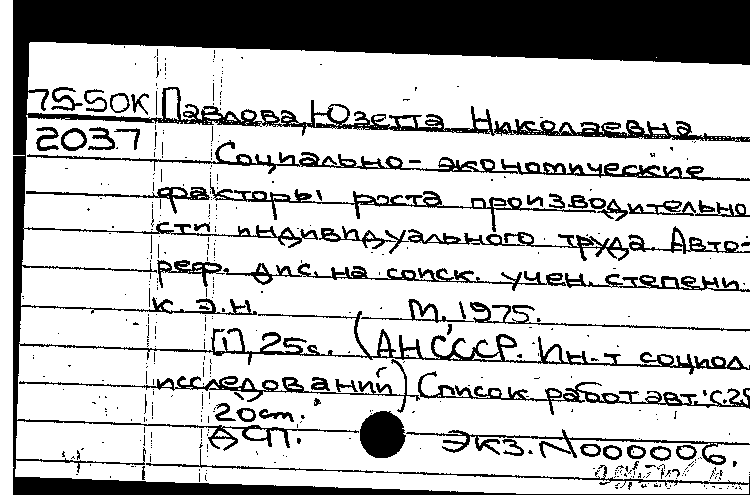 75-50К Павлова, Юзетта Николаевна.
2037
Социально-экономические
факторы роста производительно
сти индивидуального труда. Авто-
реф. дис. на соиск. учен. степени
к. э. н. М., 1975.
[1], 25с. (АН СССР. Ин-т социол.
исследований). Список работ авт.: с. 25
20см.
ДСП. Экз. N000006.